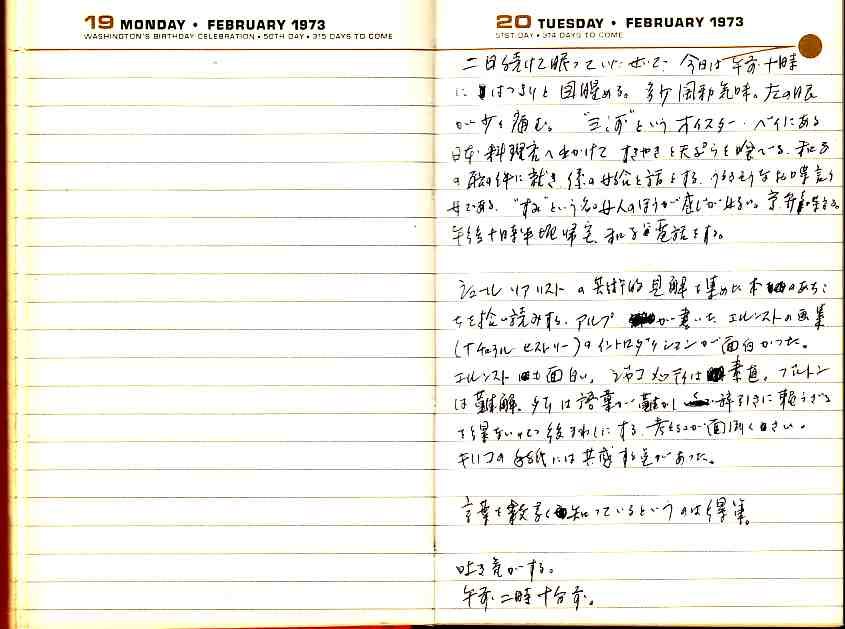 19 MONDAY • FEBRUARY 1973
WASHINGTON'S BIRTHDAY CELEBRATION • 50TH DAY • 315 DAYS TO COME
20 TUESDAY • FEBRUARY 1973
51ST DAY • 314 DAYS TO COME
二日続けて眠っていたせいで、今日は午前十時
にはっきりと目醒める。多少風邪気味。左の眼
が少々痛む。"三河"というオイスター・ベイにある
日本料理店へ出かけて すきやきと天ぷらを喰べる。和子
の 件に就き 係の女給と話をする。
女である。"すみ"という名の女人のほうが感じが
午後十時半頃帰宅 和子に電話をする。
シュールリアリストの芸術的見解を集めた本のあち こ
ちを拾い読みする。アルプが書いた エルンストの画集
(ナチュラル ヒストリー)のイントロダクションが面白かった。
エルンストも面白い。ジャコメッティは素直。ブルトン
は難解。 は語葉が難かし 辞引きに頼らざる
を得ないので後まわしにする。 が面倒くさい。
キリコの手紙には共感する点があった。
言葉を数多く知っているというのは得策。
吐き気がする。
午前二時十分前。